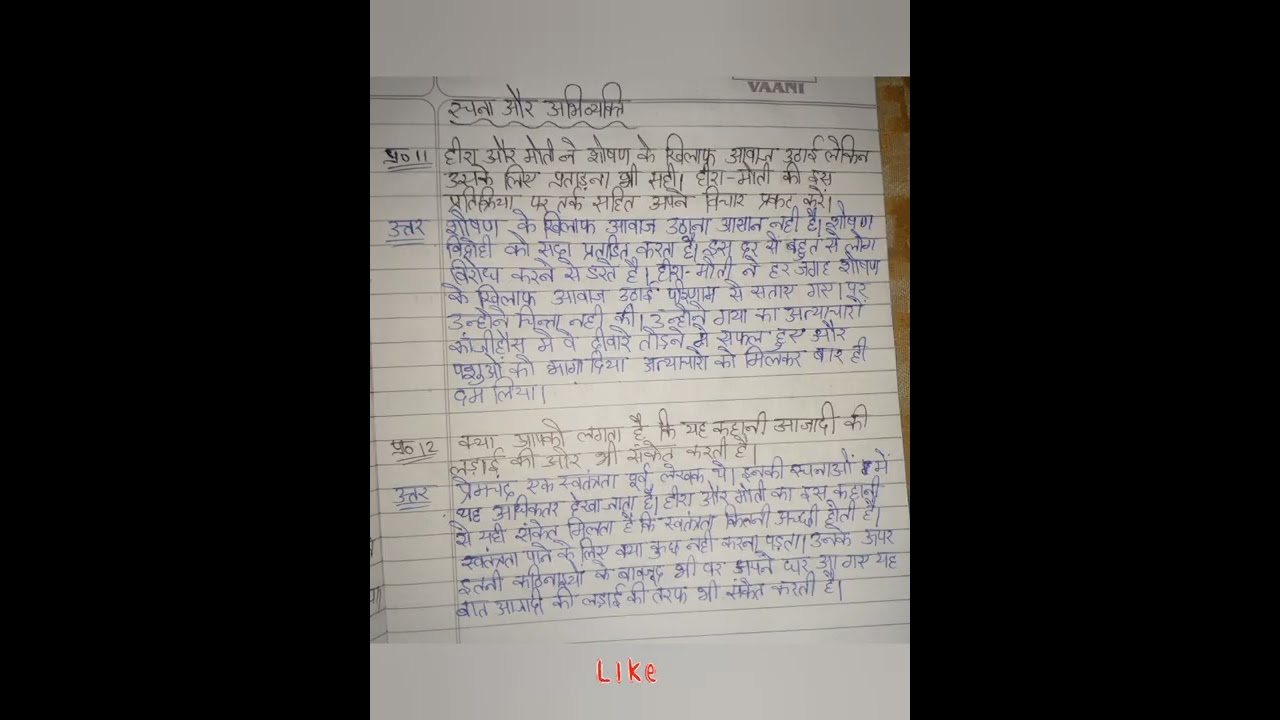 VAANI
रचना और अभिव्यक्ति
प्र० 11 हीरा और मोती ने शोषण के खिलाफ आवाज उठाई लेकिन
उसके लिए प्रताड़ना भी सही। हीरा-मोती की इस
प्रतिक्रिया पर तर्क सहित अपने विचार प्रकट करें।
उत्तर शोषण के खिलाफ आवाज उठाना आसान नहीं है। शोषण
विद्रोही को सदा प्रताड़ित करता है। इस डर से बहुत से लोग
विरोध करने से डरते है। हीरा-मोती ने हर जगह शोषण
के खिलाफ आवाज उठाई परिणाम से सताए गए। पर
उन्होंने चिन्ता नहीं की। उन्होंने गया का अत्याचारों
कांजीहौस में वे दीवारे तोड़ने में सफल हुए और
पशुओं को भागा दिया अत्याचारो को मिलकर बार ही
दम लिया।
प्र० 12 क्या आपको लगता है कि यह कहानी आजादी की
लड़ाई की ओर भी संकेत करती है।
उत्तर प्रेमचंद एक स्वतंत्रता पूर्व लेखक थे। इनकी रचनाओं में
यह अधिकतर देखा जाता है। हीरा और मोती का इस कहानी
से यही संकेत मिलता है कि स्वतंत्रता कितनी अच्छी होती है।
स्वतंत्रता पाने के लिए क्या कुछ नहीं करना पड़ता। उनके ऊपर
इतनी कठिनाइयों के बावजूद भी पर अपने घर आ गए यह
बात आजादी की लड़ाई की तरफ भी संकेत करती है।
LIKe